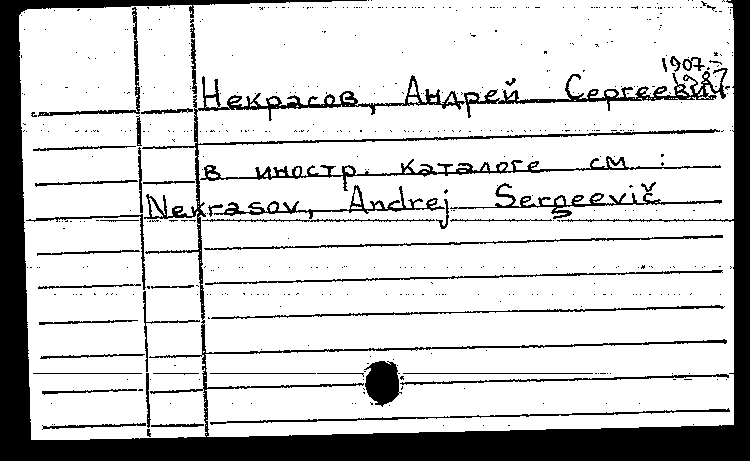 1907-
1987
Некрасов, Андрей Сергеевич
в иностр. каталоге см :
Nekrasov, Andrej Sergeevič